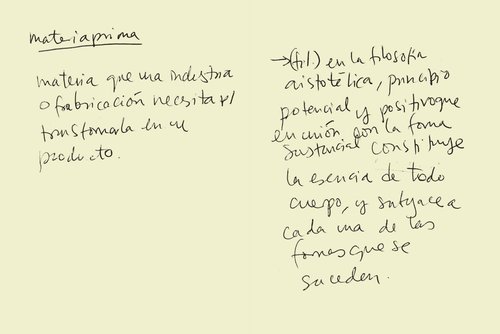 materia prima
materia que una industria
o fabricación necesita p/
transformarla en un
producto.
→(fil.) en la filosofía
aistotélica, principio
potencial y positivo que
en unión con la forma
sustancial constituye
la esencia de todo
cuerpo, y subyace a
cada una de las
formas que se
suceden.